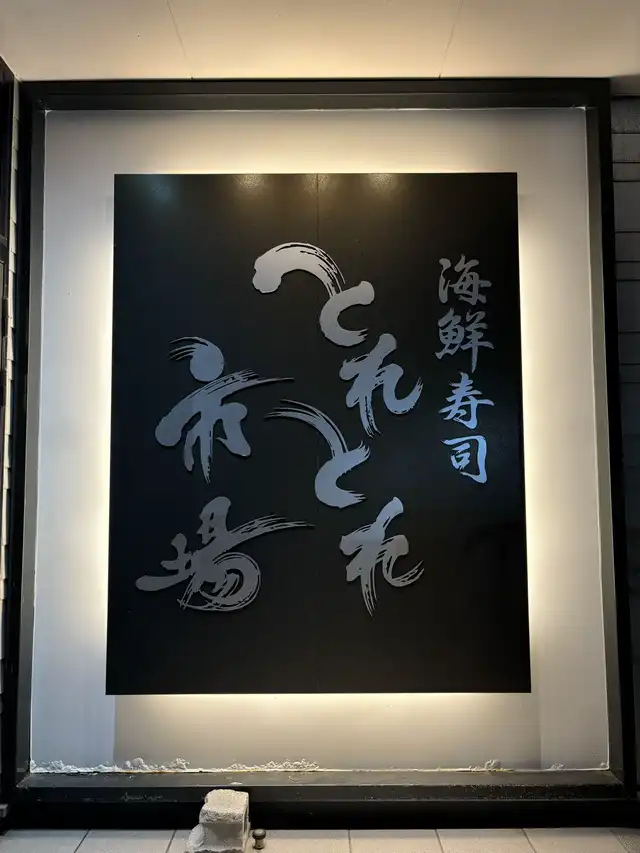 海鮮寿司
とれとれ
市場